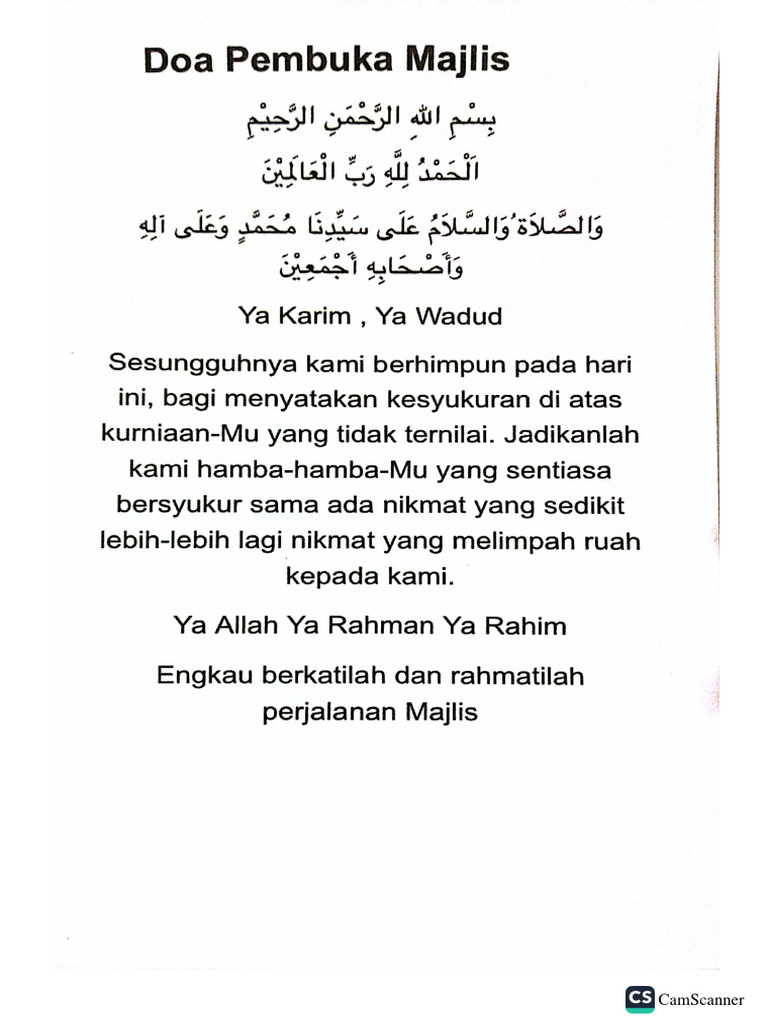 Doa Pembuka Majlis
بِسْمِ اللهِ الرَّحْمَنِ الرَّحِيْمِ
اَلْحَمْدُ لِلَّهِ رَبِّ الْعَالَمِيْنَ
وَالصَّلاَةُ وَالسَّلاَمُ عَلَى سَيِّدِنَا مُحَمَّدٍ وَعَلَى آلِهِ
وَأَصْحَابِهِ أَجْمَعِيْنَ
Ya Karim , Ya Wadud
Sesungguhnya kami berhimpun pada hari
ini, bagi menyatakan kesyukuran di atas
kurniaan-Mu yang tidak ternilai. Jadikanlah
kami hamba-hamba-Mu yang sentiasa
bersyukur sama ada nikmat yang sedikit
lebih-lebih lagi nikmat yang melimpah ruah
kepada kami.
Ya Allah Ya Rahman Ya Rahim
Engkau berkatilah dan rahmatilah
perjalanan Majlis
CS CamScanner